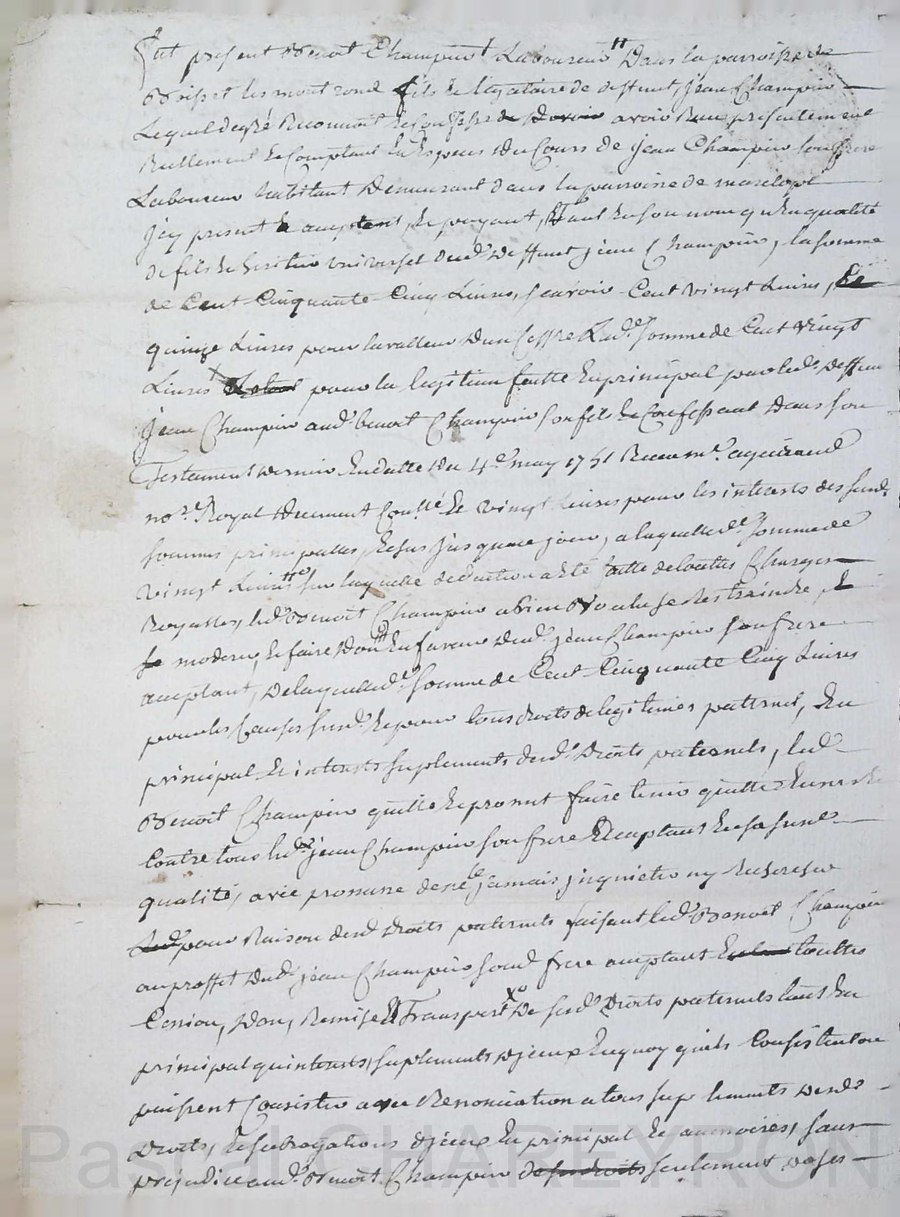 fut présent Benoit Champin Laboureur Dans la parroisse de
Boisset les mont rond fils & legataire de deffunt jean Champin
Lequel de gré Reconnoit & Confesse avoir Reçu presentement
Reellement & Comptant En Especes du Cours de jean Champin son frere
Laboureur habitant Demeurant dans la parroisse de marclopt
jcy present & acceptant, & payant, Tant En son nom qu'En qualité
de fils & heritier universel dud. deffunt jean Champin, la somme
de Cent Cinquante Cinq Livres, sçavoir Cent vingt Livres,
quinze Livres pour la valleur D'un Coffre Lade. somme de Cent vingt
Livres pour la legitime faitte En principal par led. Deffunt
jean Champin aud. benoit Champin son fils & Confessant Dans son
Testament dernier En datte du 4e. may 1751 Receu me.
nore. Royal Duement Con.llé & vingt Livres pour les interets des susd.
sommes principalles, Echus jusqu'a ce jour, a laquelle de. somme de
vingt Livres sur laquelle deduction a Eté faitte de touttes Charges
Royalles, led. Benoit Champin a bien voulu se Restraindre, &
se moderer, & faire Don En faveur dud. jean Champin son frere
acceptant, De laquelle de. somme de Cent Cinquante Cinq Livres
pour les Causes susd. & pour tous droits de legitimes paternels, En
principal & interets suplements desd. Droits paternels, led.
Benoit Champin quitte & promet faire tenir quitte Envers &
Contre tous led. jean Champin son frere acceptant En sa susd.
qualité, avec promesse de ne le jamais jnquieter ny Rechercher
pour Raison desd. Droits paternels faisant led. Benoit Champin
au proffit dud. jean Champin sond. frere acceptant touttes
Cession, Don, Remise & Transport De sesd. Droits paternels tant En
principal qu'interets, suplements d'jceux En quoy qu'ils Consistent ou
puissent Consister avec Renonciation a tous suplements desd.
Droits, & subrogations d'jceux En principal & accessoires, sans
prejudice aud. Benoit Champin seulement de ses
Pascal CHAREYRON